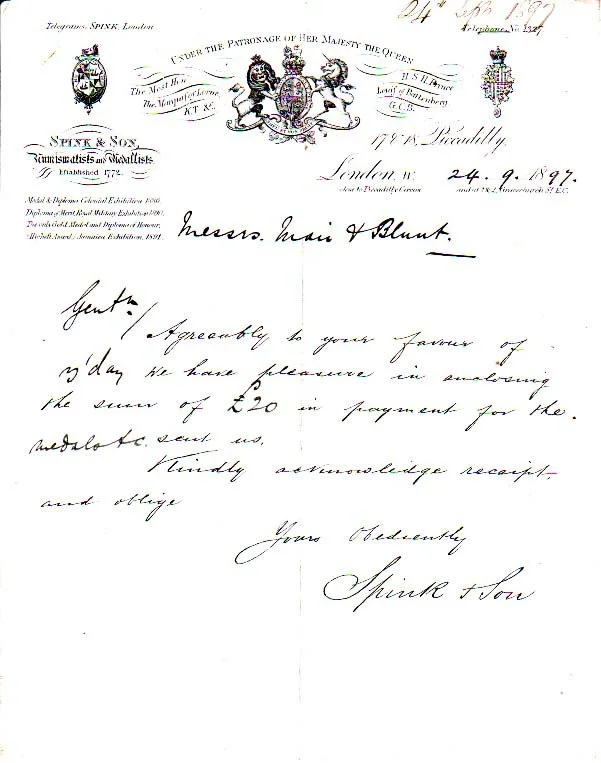 24" Sep 1897
Telegrams, SPINK, London
Telephone, No
UNDER THE PATRONAGE OF HER MAJESTY THE QUEEN
The Most Hon.
The Marquis of Lorne,
K.T. &c.
H.S.H. Prince
Louis of Battenberg
G.C.B.
SPINK & SON,
Numismatists and Medallists.
Established 1772.
17 & 18, Piccadilly,
London, W. 24. 9. 1897.
close to Piccadilly Circus and at 1 & 2, Gracechurch St E.C.
Medal & Diploma Colonial Exhibition 1886.
Diploma of Merit, Royal Military Exhibition 1890.
The only Gold Medal and Diploma of Honour,
Highest Award, Jamaica Exhibition, 1891.
Messrs. Mair & Blunt.
Gentn/
Agreeably to your favour of
y'day we have pleasure in enclosing
the sum of £20 in payment for the
medals &c. sent us.
Kindly acknowledge receipt,
and oblige
Yours Obediently
Spink & Son